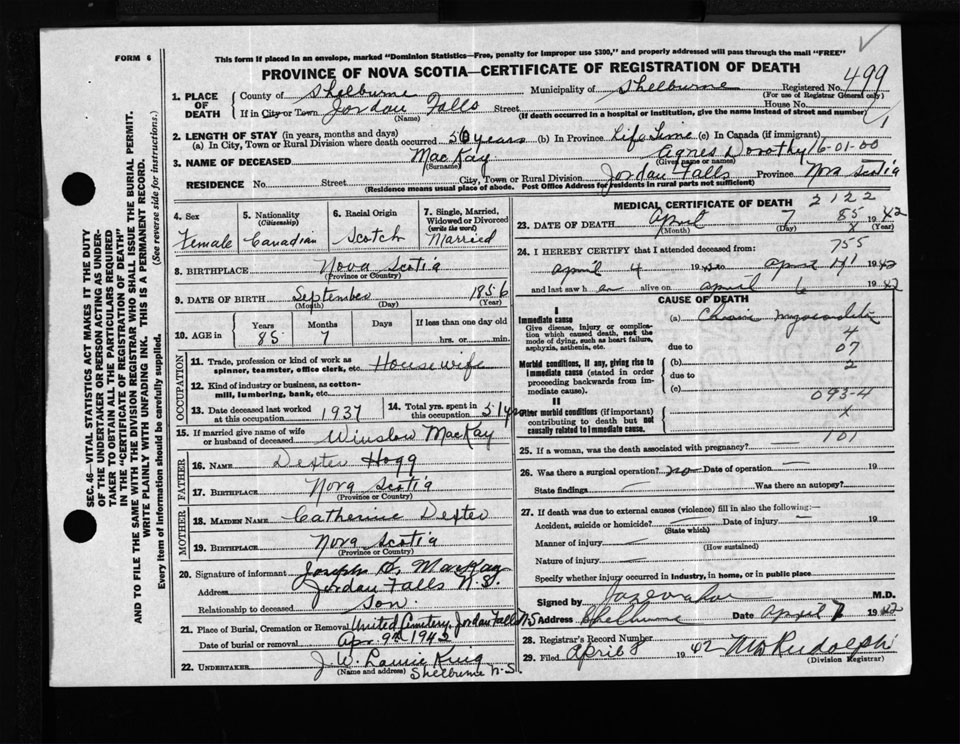 FORM 6
This form if placed in an envelope, marked "Dominion Statistics—Free, penalty for improper use $300," and properly addressed will pass through the mail "FREE"
PROVINCE OF NOVA SCOTIA—CERTIFICATE OF REGISTRATION OF DEATH
499
1. PLACE OF DEATH
County of Shelburne
Municipality of Shelburne
Registered No.
(For use of Registrar General only)
If in City or Town Jordan Falls Street House No.
(Name)
(If death occurred in a hospital or institution, give the name instead of street and number)
2. LENGTH OF STAY (in years, months and days)
(a) In City, Town or Rural Division where death occurred 50 years (b) In Province Life Time (c) In Canada (if immigrant)
3. NAME OF DECEASED MacKay Agnes Dorothy 6-01-00
(Surname) (Given name or names)
RESIDENCE No. Street City, Town or Rural Division Jordan Falls Province Nova Scotia
(Residence means usual place of abode. Post Office Address for residents in rural parts not sufficient)
4. Sex
Female
5. Nationality
(Citizenship)
Canadian
6. Racial Origin
Scotch
7. Single, Married, Widowed or Divorced
(write the word)
Married
8. BIRTHPLACE Nova Scotia
(Province or Country)
9. DATE OF BIRTH September 1856
(Month) (Day) (Year)
10. AGE in
Years Months Days If less than one day old
85 7 hrs. or min.
OCCUPATION
11. Trade, profession or kind of work as spinner, teamster, office clerk, etc. Housewife
12. Kind of industry or business, as cotton-mill, lumbering, bank, etc.
13. Date deceased last worked at this occupation 1937
14. Total yrs. spent in this occupation 51 yrs
15. If married give name of wife or husband of deceased Winslow MacKay
FATHER
16. NAME Dexter Hogg
17. BIRTHPLACE Nova Scotia
(Province or Country)
MOTHER
18. MAIDEN NAME Catherine Dexter
19. BIRTHPLACE Nova Scotia
(Province or Country)
20. Signature of informant Joseph D. MacKay
Address Jordan Falls N.S.
Relationship to deceased Son.
21. Place of Burial, Cremation or Removal United Cemetery, Jordan Falls N S
Date of burial or removal Apr. 9th 1942
22. UNDERTAKER J. W.
(Name and address) Shelburne N.S.
MEDICAL CERTIFICATE OF DEATH 2122
23. DATE OF DEATH April 7 85 1942
(Month) (Day) X (Year)
24. I HEREBY CERTIFY that I attended deceased from: 755
April 4 1942 to April 1942
and last saw h er alive on April 6 1942
CAUSE OF DEATH
I
Immediate cause
Give disease, injury or complication which caused death, not the mode of dying, such as heart failure, asphyxia, asthenia, etc.
(a) Chronic myocarditis
4
due to 07
Morbid conditions, if any, giving rise to immediate cause (stated in order proceeding backwards from immediate cause).
(b) 2
due to
(c) 093-4
II
Other morbid conditions (if important) contributing to death but not causally related to immediate cause.
X
101
25. If a woman, was the death associated with pregnancy?
26. Was there a surgical operation? no Date of operation — 19
State findings Was there an autopsy?
27. If death was due to external causes (violence) fill in also the following:—
Accident, suicide or homicide? Date of injury — 19
(State which)
Manner of injury
(How sustained)
Nature of injury
Specify whether injury occurred in industry, in home, or in public place
Signed by M.D.
Address Shelburne Date April 7 1942
28. Registrar's Record Number
29. Filed April 8 1942 Rudolph
(Division Registrar)
SEC. 46—VITAL STATISTICS ACT MAKES IT THE DUTY OF THE UNDERTAKER OR PERSON ACTING AS UNDERTAKER TO OBTAIN ALL THE PARTICULARS REQUIRED IN THE "CERTIFICATE OF REGISTRATION OF DEATH" AND TO FILE THE SAME WITH THE DIVISION REGISTRAR WHO SHALL ISSUE THE BURIAL PERMIT.
WRITE PLAINLY WITH UNFADING INK. THIS IS A PERMANENT RECORD.
Every item of information should be carefully supplied. (See reverse side for instructions.)